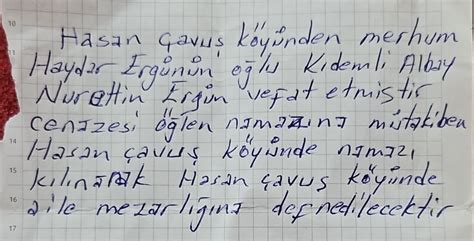 Hasan Çavuş köyünden merhum
Haydar Ergünün oğlu Kıdemli Albay
Nurettin Ergün vefat etmiştir
cenazesi öğlen namazına mütakiben
Hasan çavuş köyünde namazı
kılınarak Hasan çavuş köyünde
aile mezarlığına defnedilecektir